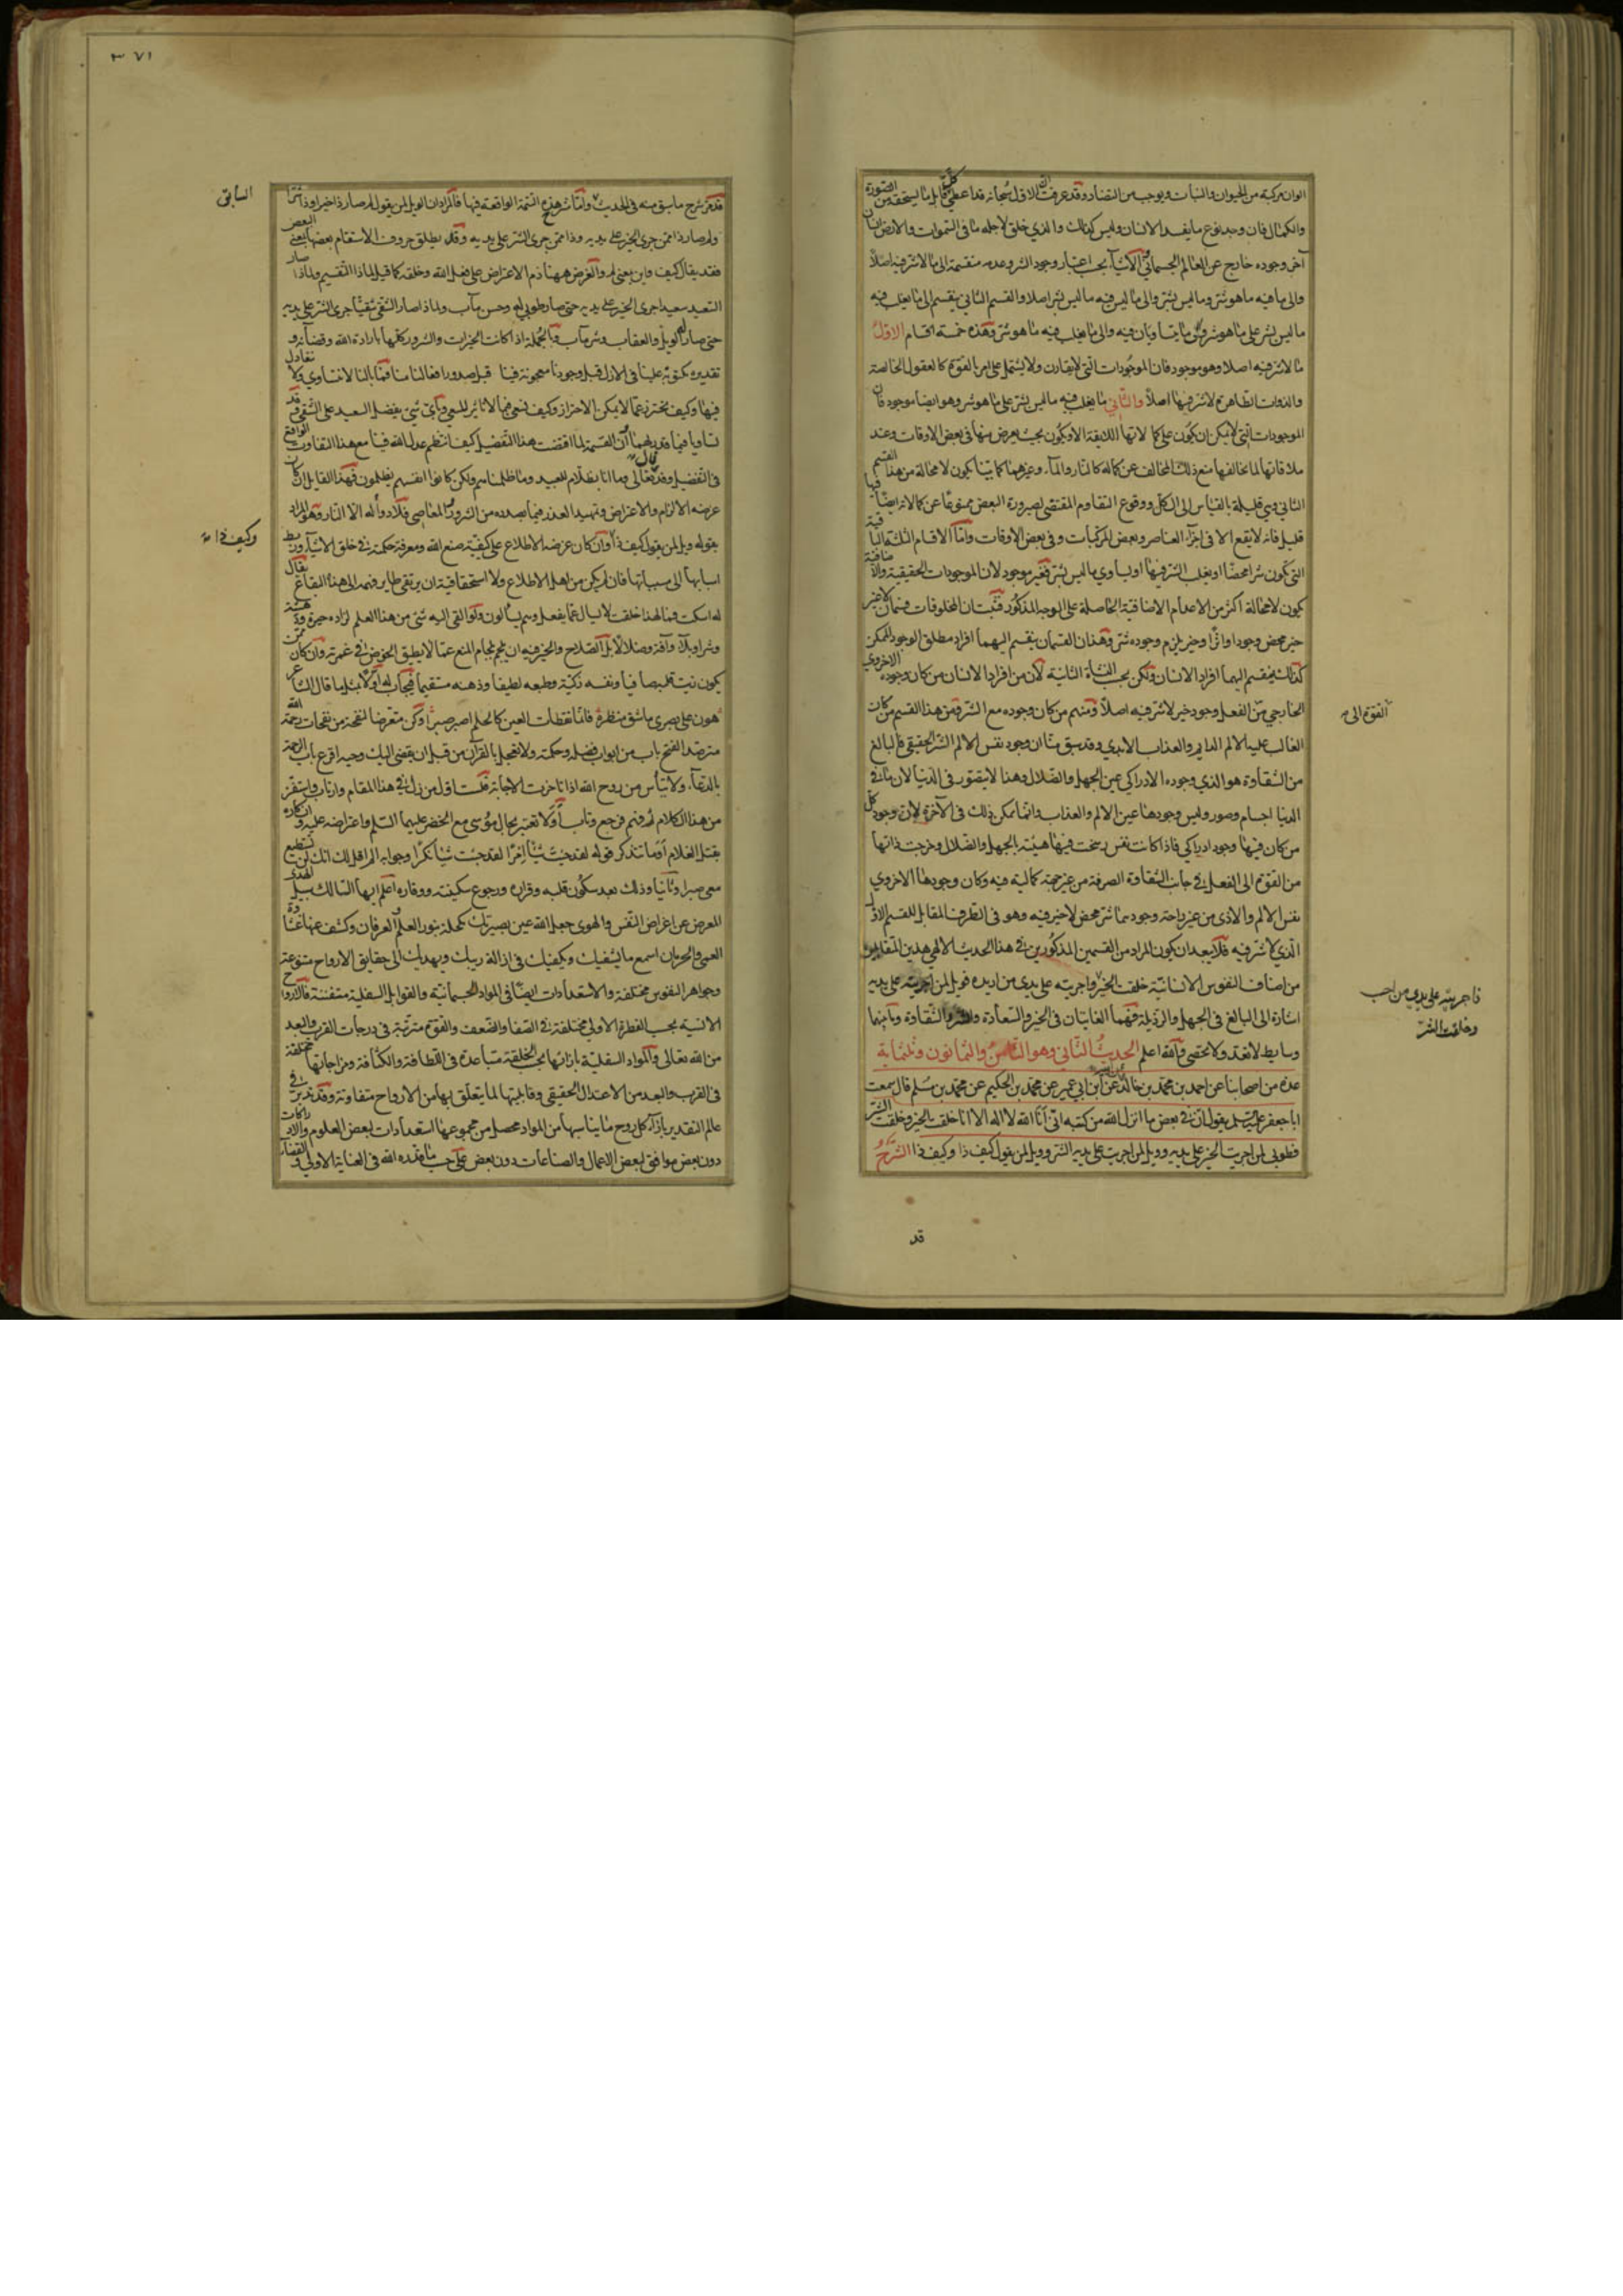 الوان مركبة من الحيوان والنبات ويوجب من التضاد وقد عرفت ان الاول سبحانه قد اعطى كل قابل ما يستحقه من الصورة
والكمال فان وجد نوع ما يفسد الانسان وليس كذلك والذي خلق لاجله ما في السموات والارض انسان
آخر وجوده خارج عن العالم الجسماني الاشياء بحسب اعتبار وجود الشر وعدمه منقسمة الى ما لا شر فيه اصلا
والى ما فيه ما هو شر وما ليس بشر والى ما ليس فيه ما ليس بشر اصلا والقسم الثاني ينقسم الى ما يغلب فيه
ما ليس بشر على ما هو شر والى ما يتساويان فيه والى ما يغلب فيه ما هو شر وهذه خمسة اقسام الاول
ما لا شر فيه اصلا وهو موجود فان الموجودات التي لا يقارن ولا يشتمل على امر بالقوة كالعقول الخالصة
والذوات الطاهرة لا شر فيها اصلا والثاني ما يغلب فيه ما ليس بشر على ما هو شر وهو ايضا موجود فان
الموجودات التي لا يمكن ان يكون على كمالاتها اللايقة الا ويكون بحيث يعرض منها في بعض الاوقات وعند
ملاقاتها لما يخالفها منع ذلك المخالف عن كماله كالنار والماء وغيرهما كما بينا يكون لا محالة من هذا القسم
الثاني وهي قليلة بالقياس الى الكل ووقوع التقاوم المقتضي لصيرورة البعض ممنوعا عن كمالاته ايضا فيها
قليل فانه لا يقع الا في اجزاء العناصر وبعض المركبات وفي بعض الاوقات واما الاقسام الثلثة الباقية
التي يكون شرا محضا او يغلب الشر فيها او يساوي ما ليس بشر فغير موجود لان الموجودات الحقيقية والاضافية
يكون لا محالة اكثر من الاعدام الاضافية الحاصلة على الوجه المذكور فثبت ان المخلوقات قسمان لا غير
خير محض وجودا واثرا وخير يلزم وجوده شر وهذان القسمان ينقسم اليهما افراد مطلق الوجود الممكن
كذلك ينقسم اليهما افراد الانسان ولكن بحسب النشأة الثانية لان من افراد الانسان من كان وجوده الاخروي
الخارجي من الفعل وجود خير لا شر فيه اصلا ومنهم من كان وجوده مع الشر فمن هذا القسم من كان
القوة الى
الغالب عليه الالم الدايم والعذاب الابدي وقد سبق منا ان وجود نفس الالم الشر الحقيقي فالبالغ
من الشقاوة هو الذي وجوده الادراكي عين الجهل والضلال وهنا لا يتصور في الدنيا لان ما في
الدنيا اجسام وصور وليس وجودها عين الالم والعذاب وانما يمكن ذلك في الآخرة لان وجود كل
من كان فيها وجود ادراكي فاذا كانت نفس رسخت فيها هيئة الجهل والضلال وخرجت ذاتها
من القوة الى الفعل في جانب الشقاوة الصرفة من غير جهة كمالية فيه وكان وجودها الاخروي
نفس الالم والاذى من غير راحة وجود هنا شر محض لا خير فيه وهو في الطرف المقابل للقسم الاول
الذي لا شر فيه فلا يبعد ان يكون المراد من القسمين المذكورين في هذا الحديث الالهي هذين المتقابلين
من اصناف النفوس الانسانية خلقت الخير واجريته على يدي من اريده فويل لمن اجريته على يديه
فاجريته على يدي من احب
وخلقت الشر
اشارة الى البالغ في الجهل والرذيلة فهما الغايتان في الخير والسعادة والشر والشقاوة وما بينهما
وسايط لا تعد ولا تحصى والله اعلم الحديث الثاني وهو الثامن والثمانون وثلثماية
عدة من اصحابنا عن احمد بن محمد بن خالد عن ابن ابي عمير عن محمد بن الحكيم عن محمد بن مسلم قال سمعت
ابا جعفر عليه السلم يقول ان في بعض ما انزل الله من كتبه اني انا الله لا اله الا انا خلقت الخير وخلقت الشر
فطوبى لمن اجريت الخير على يديه وويل لمن اجريت على يديه الشر وويل لمن يقول كيف ذا وكيف ذا الشرح
قد
٣٧١
قد مر شرح ما سبق منه في الحديث واما شرح هذه التتمة الواقعة فيها فالمراد ان الويل لمن يقول لم صار ذا خيرا وذا شرا
السابق
ولم صار ذا ممن جرى الخير على يديه وذا ممن جرى الشر على يديه وقد يطلق حروف الاستفهام بعضها بمعنى البعض
فقد يقال كيف واين بمعنى لم والغرض ههنا ذم الاعتراض على فعل الله وخلقه كما قيل لماذا التقسيم ولماذا صار
السعيد سعيدا جرى الخير على يديه حتى صار طوبى له وحسن مآب ولماذا صار الشقي شقيا جرى الشر على يديه
حتى صار له الويل والعقاب وشر مآب وبالجملة اذا كانت الخيرات والشرور كلها بارادة الله وقضائه و
تقديره مكتوبة علينا في الازل قبل وجودنا معجونة فينا قبل صدور افعالنا منا فما بالنا لا نتساوى ولا نتعادل
فيها وكيف نحترز عما لا يمكن الاحتراز وكيف نسعى فيما لا تاثير للسعي وباي شيء يفضل السعيد على الشقي وقد
تساويا فيما قدر لهما ان القسمة لما اقتضت هذا التفضيل كيف انتظم عدل الله فينا مع هذا التفاوت الواقع
في التفضيل وقد قال تعالى وما انا بظلام للعبيد وما ظلمناهم ولكن كانوا انفسهم يظلمون فهذا القايل ان كان
غرضه الالزام والاعتراض وتمهيد العذر فيما يصدره من الشرور والمعاصي فلا دواء له الا النار وهو المراد
بقوله ويل لمن يقول كيف ذا وان كان غرضه الاطلاع على كيفية صنع الله ومعرفة حكمته في خلق الاشياء وربط
وكيف ذا
اسبابها الى مسبباتها فان لم يكن من اهل الاطلاع ولا استحقاقية ان يرتقي طاير فهمه الى هذا البقاع يقال
له اسكت فما لهذا خلقت لا يسال عما يفعل وهم يسألون ولو القي اليه شيء من هذا العلم لزاده حيرة ودهشة
وشرا وبلاء وآفة وضلالا بل الصلاح والخير فيه ان يلجم بلجام المنع عما لا يطيق الخوض في غمرته وان كان ممن
يكون نيت قلبه صافيا ونفسه زكية وطبعه لطيفا وذهنه مستقيما فيجاب له اولا بمثل ما قال الشاعر
هون على بصري ما شق منظره فانما يقظات العين كالحلم اصبر صبرا وكن متعرضا لنفحة من نفحات رحمة الله
مترصدا لفتح باب من ابواب فضله وحكمته ولا تعجل بالقرآن من قبل ان يقضى اليك وحيه اقرع باب الرحمة
بالدعاء ولا تيأس من روح الله اذا تاخرت الاجابة فلست اول من زل في هذا المقام وارتاب واستفز
من هذا الكلام ثم فهم فرجع وتاب اولا تعتبر بحال موسى مع الخضر عليهما السلم واعتراضه عليه وانكاره
بقتل الغلام اوما تتذكر قوله لقد جئت شيئا امرا لقد جئت شيئا نكرا وجوابه الم اقل لك انك لن تستطيع
معي صبرا وثانيا وذلك بعد سكون قلبه وقراره ورجوع سكينته ووقاره اعلم ايها السالك سبيل الهدى
المعرض عن اغراض النفس والهوى جعل الله عين بصيرتك مكحلة بنور العلم والعرفان وكشف عنها غشاوة
العمى والحرمان اسمع ما يشفيك ويكفيك في ازالة ريبك ويهديك الى حقايق الارواح متنوعة
وجواهر النفوس مختلفة والاستعدادات ايضا في المواد الجسمانية والقوابل السفلية متفننة فالارواح
الانسية بحسب الفطرة الاولى مختلفة في الصفا والضعف والقوة مترتبة في درجات القرب والبعد
من الله تعالى والمواد السفلية بازائها بحسب الخلقة متباعدة في اللطافة والكثافة ومزاجاتها مختلفة
في القرب والبعد من الاعتدال الحقيقي وقابليتها لما يتعلق بها من الارواح متفاوتة وقد قدر في
عالم التقدير بازاء كل روح ما يناسبها من المواد محصل من مجموعها استعدادات لبعض العلوم والادراكات
دون بعض موافق لبعض الاعمال والصناعات دون بعض على حسب ما قدره الله في العناية الاولى والقضاء